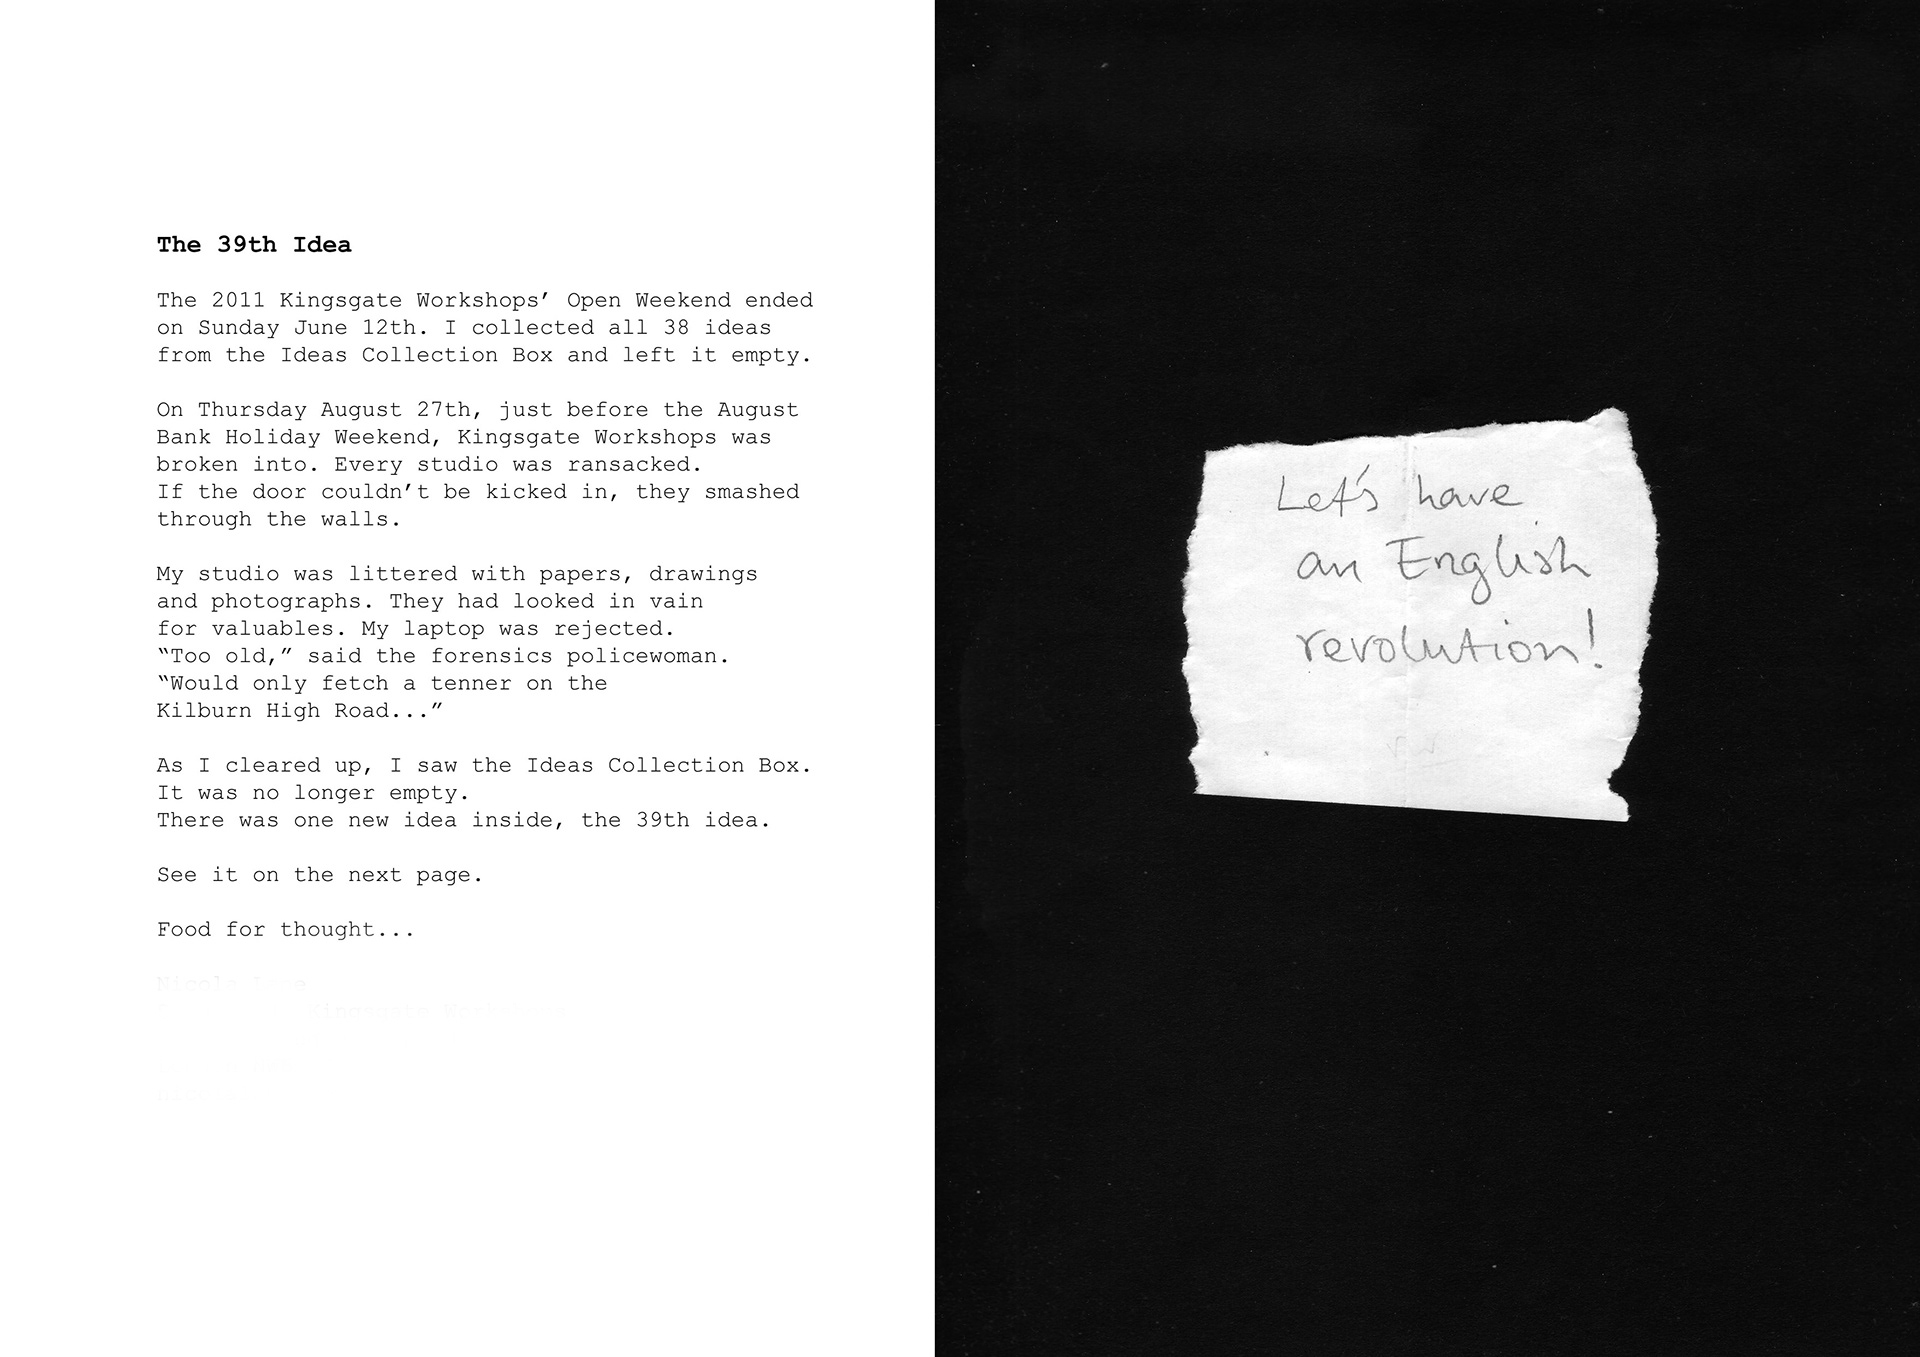 The 39th Idea
The 2011 Kingsgate Workshops’ Open Weekend ended
on Sunday June 12th. I collected all 38 ideas
from the Ideas Collection Box and left it empty.
On Thursday August 27th, just before the August
Bank Holiday Weekend, Kingsgate Workshops was
broken into. Every studio was ransacked.
If the door couldn’t be kicked in, they smashed
through the walls.
My studio was littered with papers, drawings
and photographs. They had looked in vain
for valuables. My laptop was rejected.
“Too old,” said the forensics policewoman.
“Would only fetch a tenner on the
Kilburn High Road...”
As I cleared up, I saw the Ideas Collection Box.
It was no longer empty.
There was one new idea inside, the 39th idea.
See it on the next page.
Food for thought...
Let's have
an English
revolution!